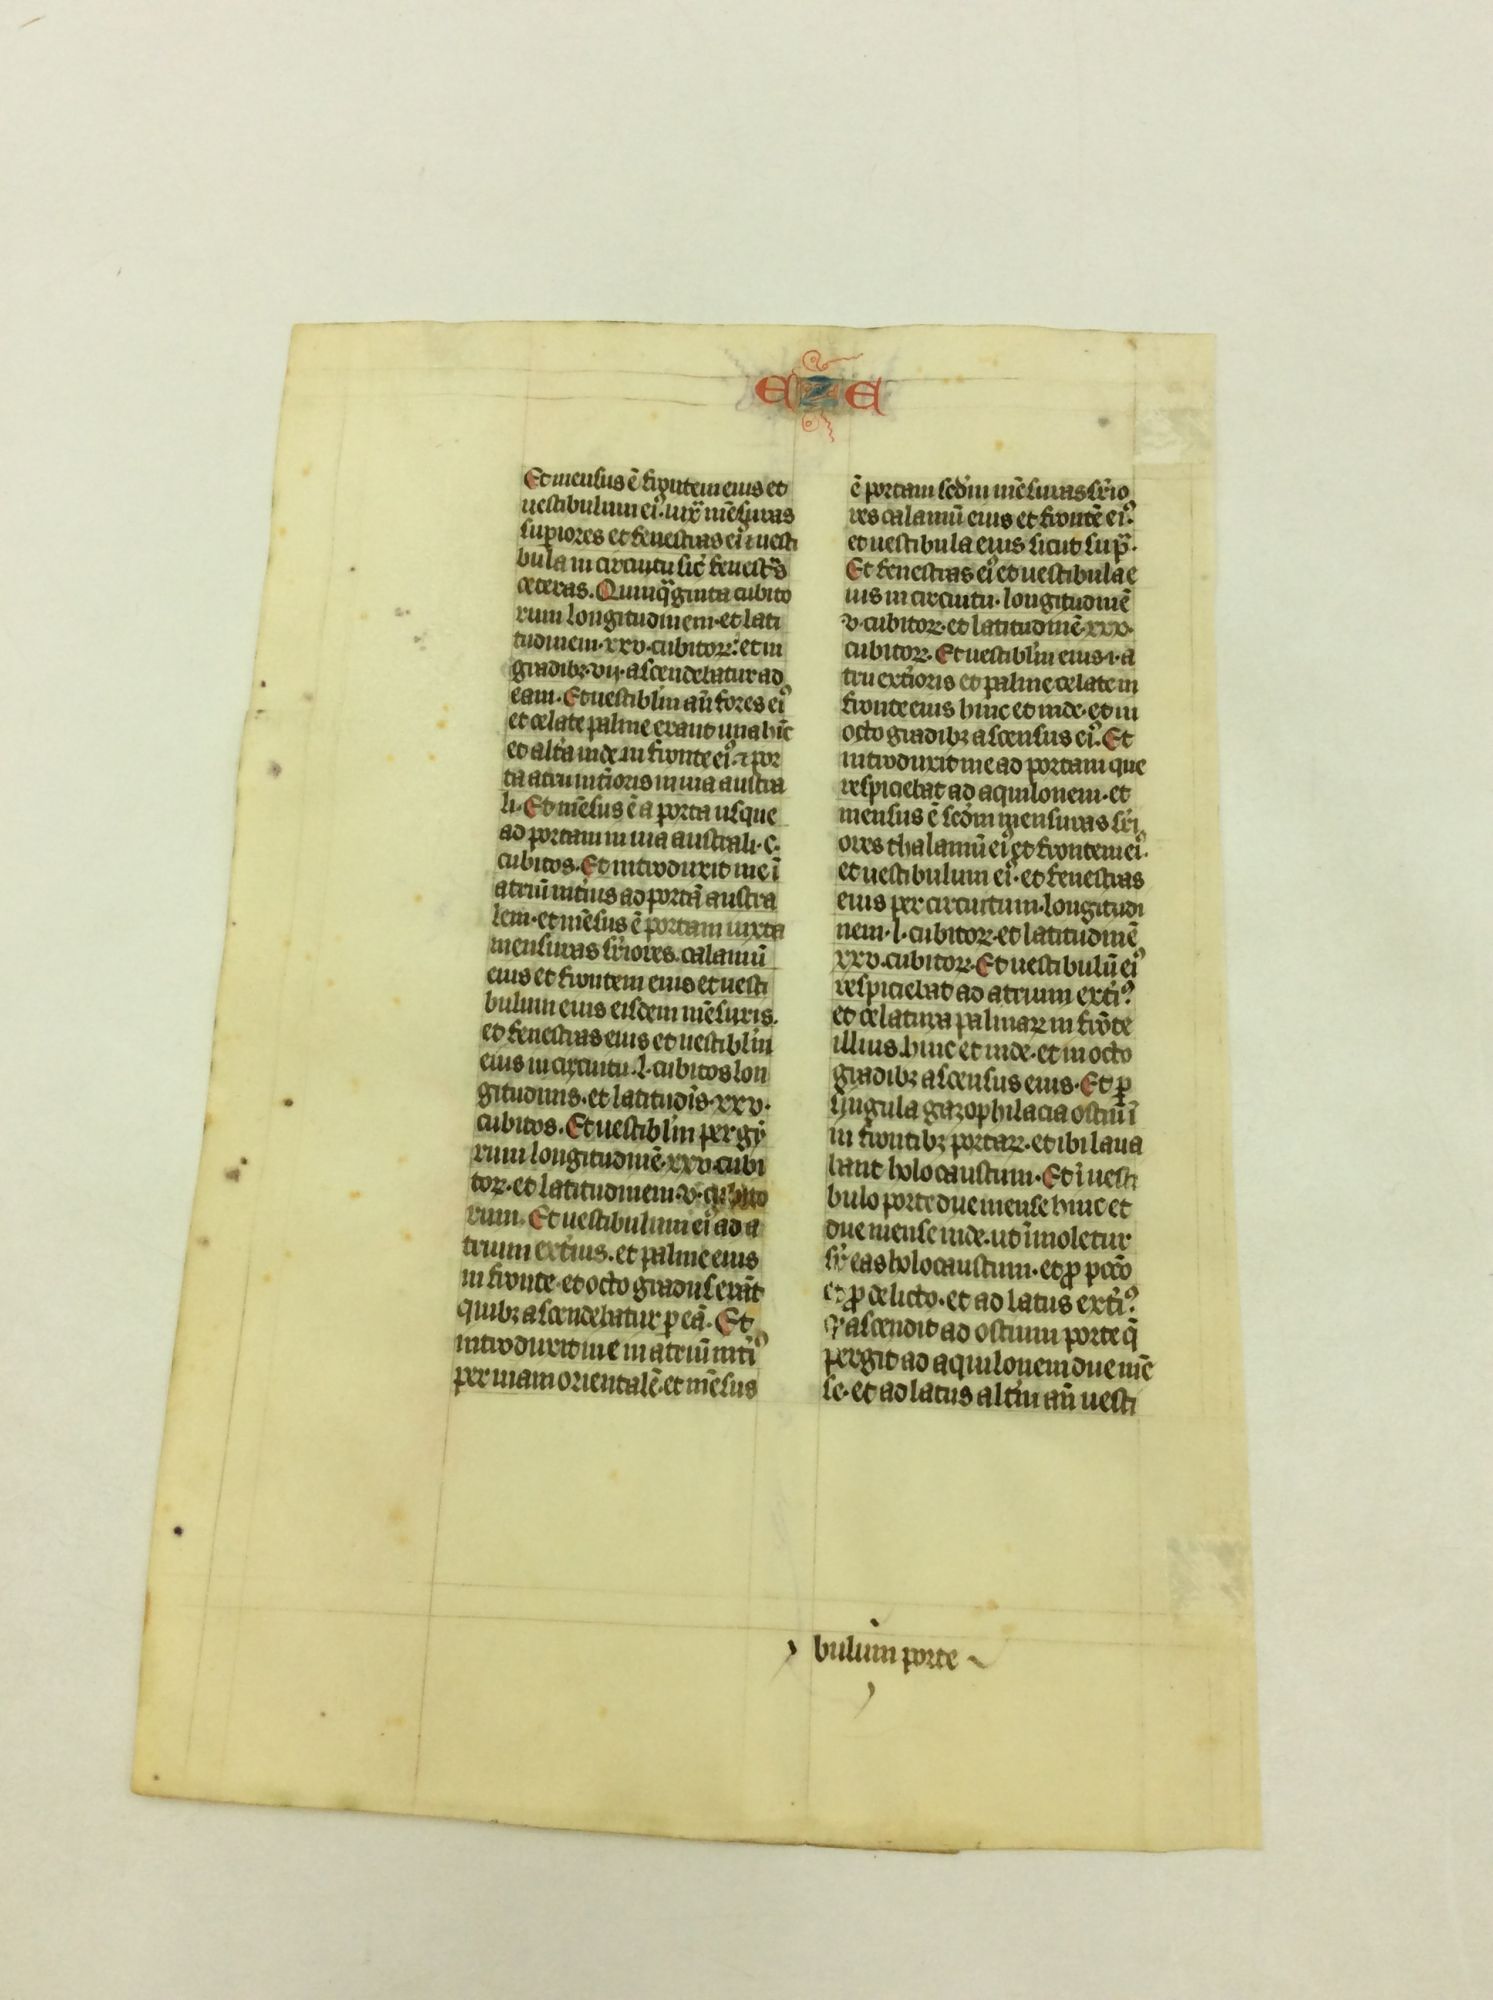 EZE
Et mensus ē frontem eius et
uestibulum ei⁹. iuxᷓ mēsuras
supiores et fenestras ei⁹ ⁊ uesti
bula in circuitu sic̄ fenestᷓs
ceteras. Quinqᷓginta cubito
rum longitudinem. et lati
tudinem. xxv. cubitoꝝ: et in
gradibꝫ. vij. ascendebatur ad
eam. Et uestiblm̄ an̄ fores ei⁹
et celate palme erant una hīc
et alt̄a inde in fronte ei⁹. ⁊ por
ta atrii int̄ioris in uia austra
li. Et mēsus ē a porta usque
ad portam in uia australi. c.
cubitos. Et introduxit me ī
atriū int̄ius ad portā austra
lem. et mēsus ē portam iuxta
mensuras sr̄iores. calamū
eius et frontem eius et uesti
bulum eius eisdem mēsuris.
et fenestras eius et uestiblm̄
eius in circuitu. l. cubitos lon
gitudinis. et latitudīs. xxv.
cubitos. Et uestiblm̄ per gy
rum longitudinē. xxv. cubi
toꝝ. et latitudinem. v. cubito
rum. Et uestibulum ei⁹ ad a
trium ext̄ius. et palme eius
in fronte. et octo gradus erāt
quibꝫ ascendebatur p eā. Et
introduxit me in atriū int̄i⁹
per uiam orientalē. et mēsus
ē portam sedm̄ mēsuras sr̄io
res calamū eius et frontē ei⁹.
et uestibula eius sicut supᷓ.
Et fenestras ei⁹ et uestibula e
ius in circuitu. longitudinē
v. cubitoꝝ. et latitudinē. xxv.
cubitoꝝ. Et uestiblm̄ eius. i. a
trii ext̄ioris et palme celate in
fronte eius hinc et inde. et in
octo gradibꝫ ascensus ei⁹. Et
introduxit me ad portam que
respiciebat ad aquilonem. et
mensus ē sedm̄ mensuras sr̄i
ores thalamū ei⁹ et frontem ei⁹.
et uestibulum ei⁹. et fenestras
eius per circuitum. longitudi
nem. l. cubitoꝝ. et latitudinē
xxv. cubitoꝝ. Et uestibulū ei⁹
respiciebat ad atrium ext̄i⁹.
et celatura palmaꝝ in frōte
illius. hinc et inde. et in octo
gradibꝫ ascensus eius. Et ꝑ
syngula gazophilacia ostiū ī
in frontibꝫ portaꝝ. et ibi laua
bant holocaustum. Et ī uesti
bulo porte due mense hinc et
due mense inde. ut īmoletur
sr̄ eas holocaustum. et ꝓ pcc̄o
et ꝓ delicto. et ad latus ext̄i⁹.
ascendit ad ostium porte q̄
pergit ad aquilonem due mē
se. et ad latus alt̄m an̄ uesti
bulum porte